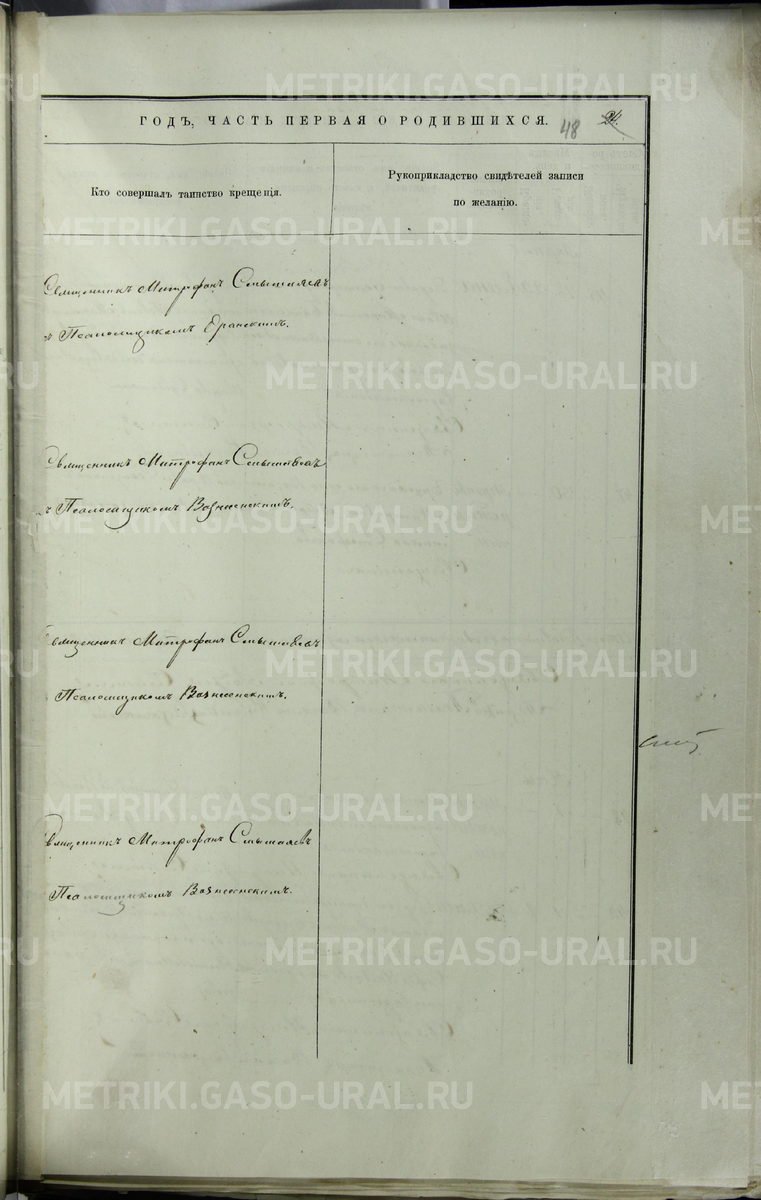 ГОДЪ, ЧАСТЬ ПЕРВАЯ О РОДИВШИХСЯ. 48
Кто совершалъ таинство крещенія.
Рукоприкладство свидѣтелей записи
по желанію.
Священникъ Митрофанъ Смышляевъ
Псаломщикомъ
Священникъ Митрофанъ Смышляевъ
Псаломщикомъ Вознесенскимъ.
Священникъ Митрофанъ Смышляевъ
Псаломщикомъ Вознесенскимъ.
Священникъ Митрофанъ Смышляевъ
Псаломщикомъ Вознесенскимъ.
METRIKI.GASO-URAL.RU